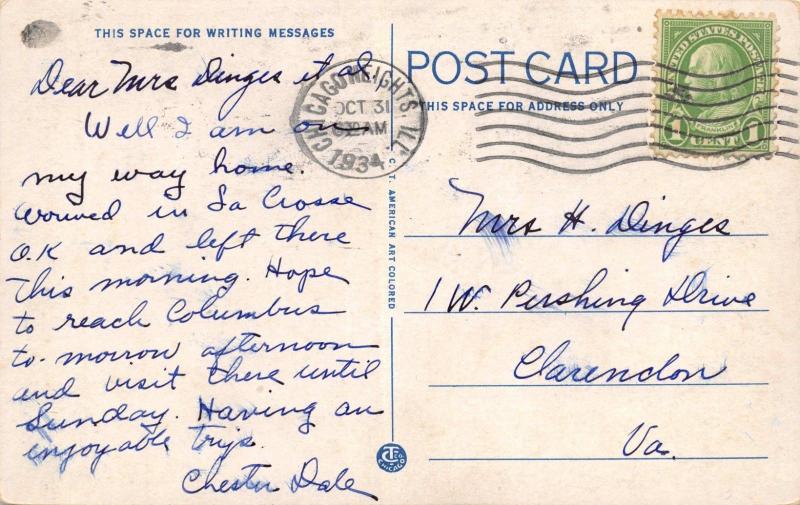 THIS SPACE FOR WRITING MESSAGES
Dear Mrs Dinges et al
Well I am on
my way home.
Arrived in La Crosse
O.K and left there
this morning. Hope
to reach Columbus
to-morrow afternoon
and visit there until
Sunday. Having an
enjoyable trip.
Chester Dale
CHICAGO HEIGHTS ILL.
OCT 31
AM
1934
C. T. AMERICAN ART COLORED
CHICAGO
POST CARD
THIS SPACE FOR ADDRESS ONLY
UNITED STATES POSTAGE
FRANKLIN
1 CENT 1
Mrs H. Dinges
1 W. Pershing Drive
Clarendon
Va.